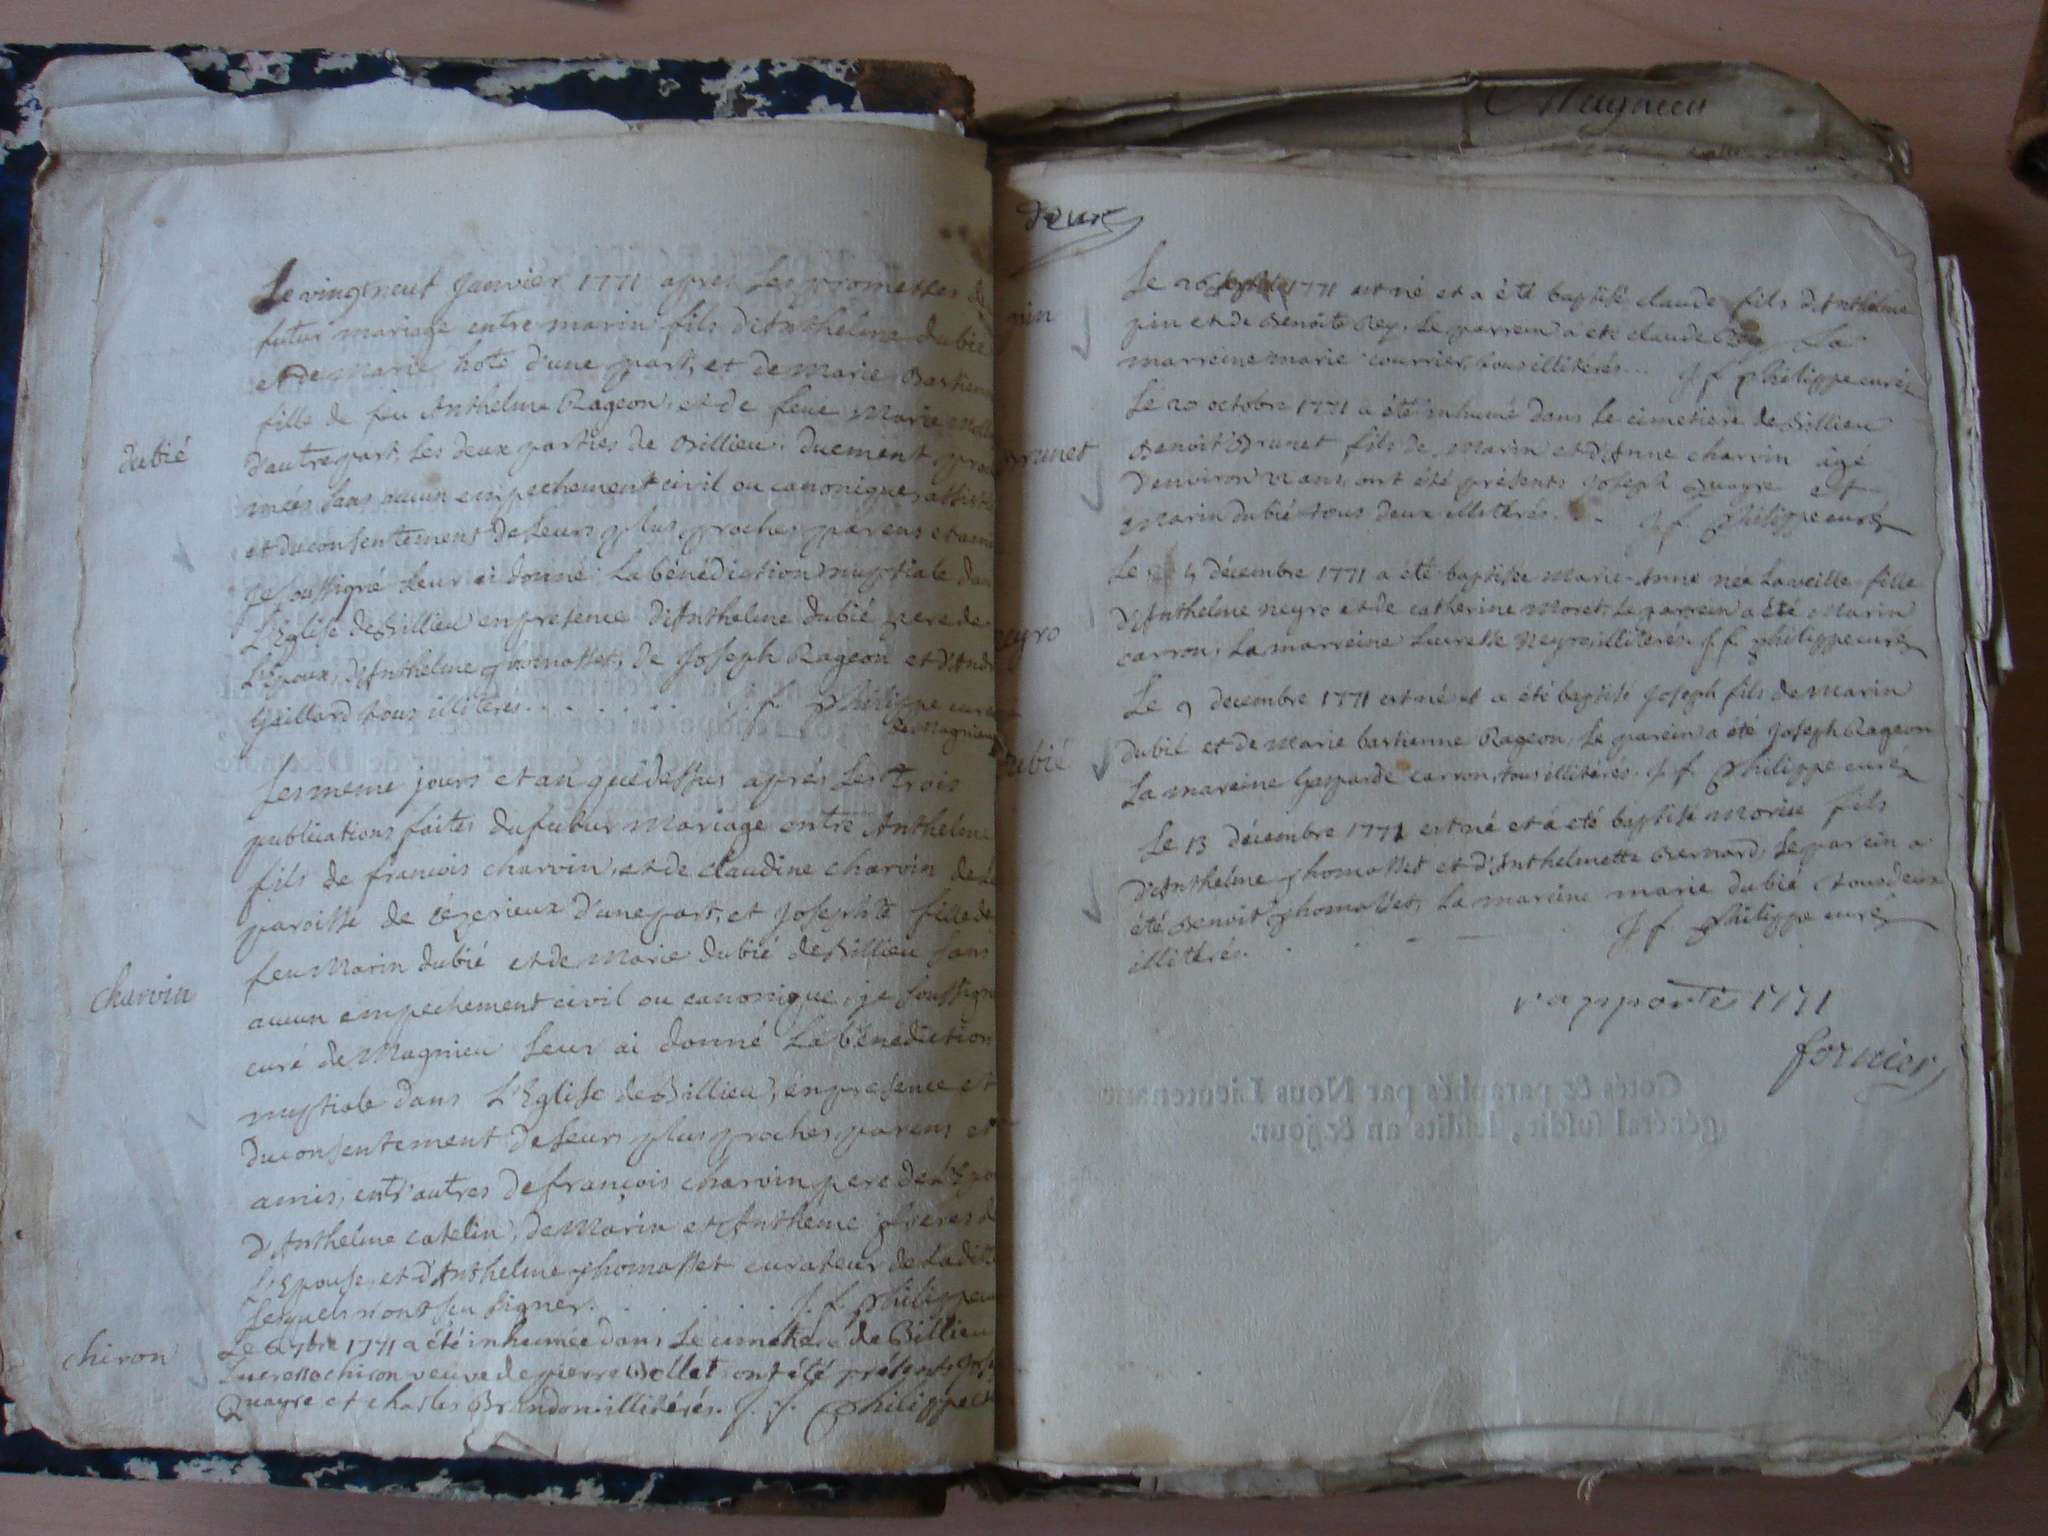 Le vingtneuf Janvier 1771 après les promesses de
futur mariage entre marin fils d'Anthelme dubié
et de Marie hote d'une part, et de marie Bastienne
fille de feu Anthelme Rageon, et de feue Marie
dubié
d'autre part, les deux parties de Billieu. duement
mées sans aucun empechement civil ou canonique, assistés
et du consentement de leurs plus proches parens et amis
je soussigné leur ai donné la bénédiction nuptiale dans
L'Eglise de Billieu en presence d'Anthelme dubié pere de
L'Epoux, d'Anthelme thomasset, de Joseph Rageon et d'André
Gaillard tous illiteres. . . . . . . j. f. philippe curé
de Magnieu
Les meme jours et an que dessus après les trois
publications faites du futur Mariage entre Anthelme
fils de francois charvin, et de claudine charvin de la
paroisse de cézerieux d'une part, et Josephte fille de
feu Marin dubié et de Marie dubié de Billieu sans
charvin
aucun empechement civil ou canonique, je soussigné
curé de Magnieu leur ai donné la bénédiction
nuptiale dans L'Eglise de Billieu, en presence et
du consentement de leurs plus proches parens et
amis, entr'autres de francois charvin pere de l'Epoux
d'Anthelme catelin, de Marin et Antheme freres de
L'Epouse, et d'Anthelme thomasset curateur de ladite
Lesquels n'ont seu signer. . . . . . j. f. philippe
chiron
Le 7bre 1771 a été inhumée dans le cimetiere de Billieu
Lucresse chiron veuve de pierre Bollet ont été présents Joseph
Quayre et charles Brandon illitérés. J. f. philippe

deux
Le 26 septbre 1771 est né et a été baptisé claude fils d'Anthelme
pin
pin et de Benoite Rey. Le parrein a été claude Rey La
marreine marie courrier, tous illitérés... J f philippe curé
Le 20 octobre 1771 a été inhumé dans le cimetiere de Billieu
Brunet
Benoit Brunet fils de Marin et d'Anne charvin âgé
d'environ 22 ans, ont été présents Joseph Quayre et
Marin dubié tous deux illitérés. . . J. f. philippe curé
Le 4 décembre 1771 a été baptisée Marie-Anne née La veille fille
neyro
d'Anthelme neyro et de catherine Moret, Le parrein a été Marin
carron, La marreine Lucresse Neyro, illiterés. J. f. philippe curé
Le 9 decembre 1771 est né et a été baptisé Joseph fils de Marin
dubié
dubié et de Marie bastienne Rageon, Le parein a été Joseph Rageon
La mareine Gasparde carron, tous illitérés. J. f. philippe curé
Le 13 décembre 1771 est né et a été baptisé Morieu fils
d'Anthelme thomasset et d'Anthelmette Bernard, Le parein a
été Benoit thomasset, La mareine marie dubié, tous deux
illitérés. . . J f philippe curé
rapporté 1771
fornier
Cotés & paraphés par Nous Lieutenant
général susdit, lesdits an & jour.
Magnieu